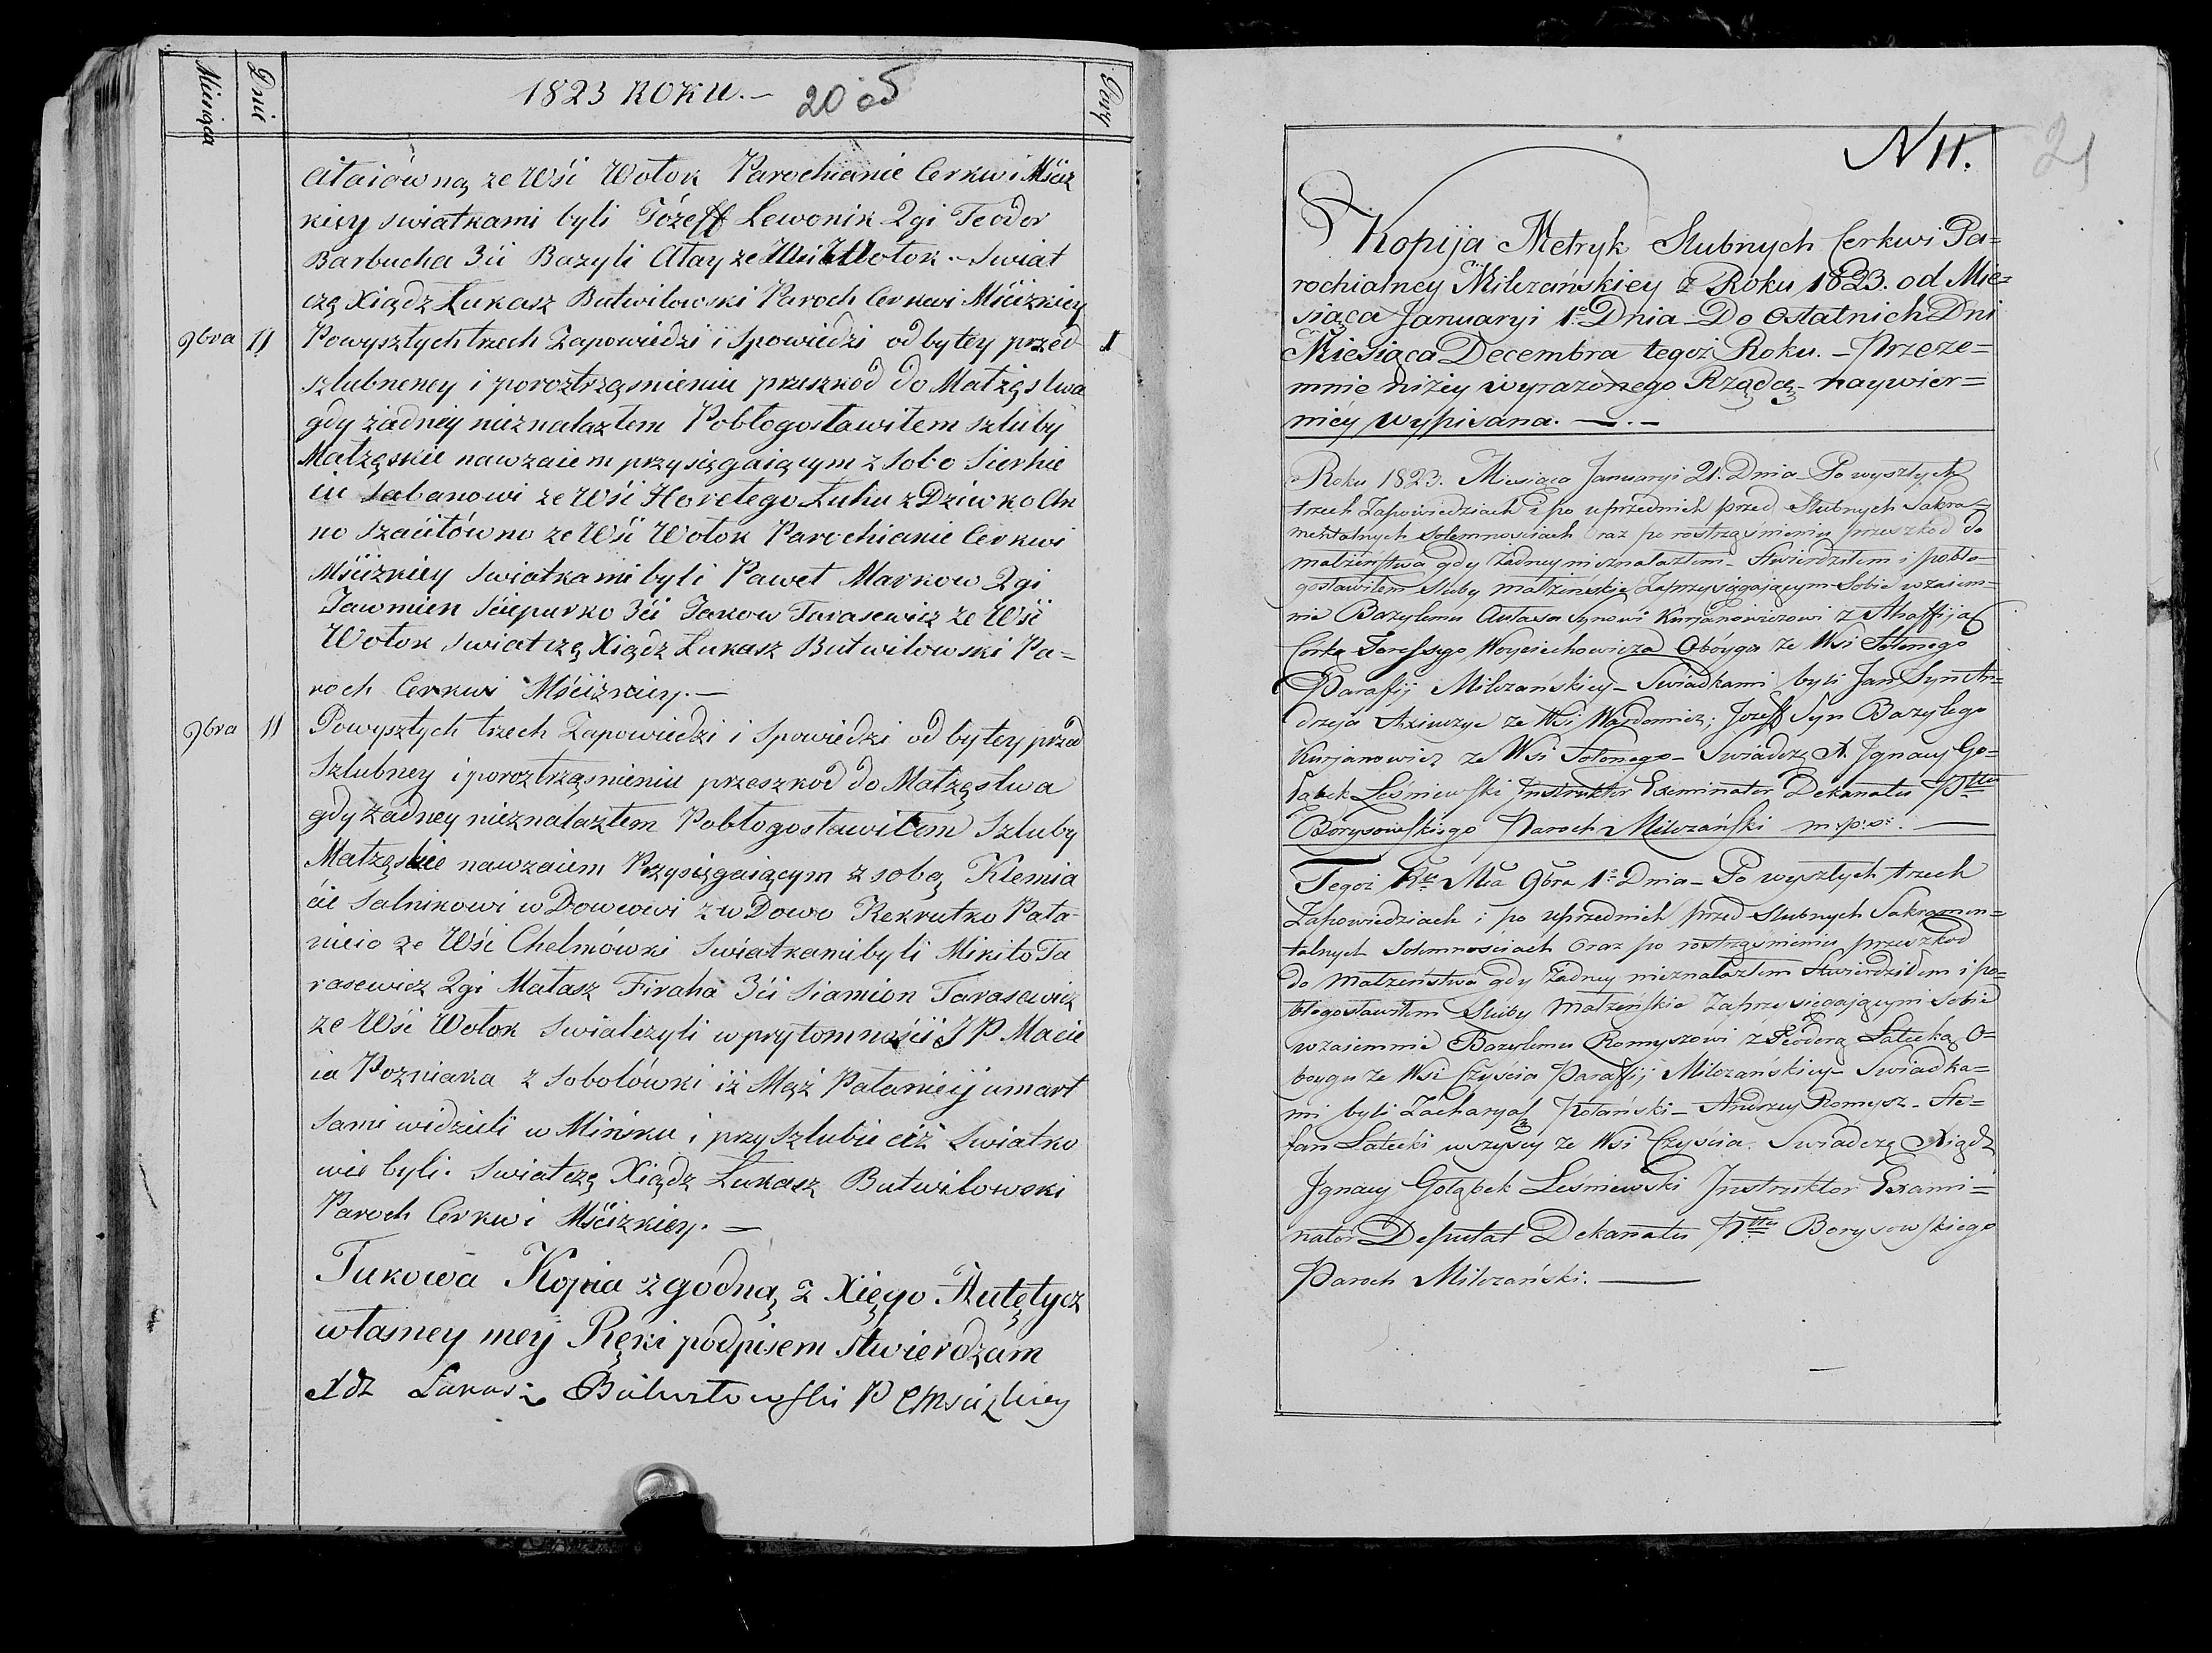 Miesiąca
Dnie
1823 ROKU.—
20 об
Pary
Ataiówną ze Wśi Wołok Parochianie Cerkwi Mściz
kiey swiatkami byli Józeff Lewonik 2gi Teodor
Barbucha 3ći Bazyli Atay ze Wśi Wołok. Swiat
czę Xiądz Łukasz Butwiłowski Paroch Cerkwi Mścizkiey
9bra 11 Powyszłych trzech Zapowiedzi i Spowiedzi odbytey przed 1
szlubneney i poroztrząsnieniu przeszkod do Małżęstwa
gdy żadney nieznalazłem Pobłogosławiłem szluby
Małżęskie nawzaiem przysięgaiącym z sobo Sierhie
iu Sabanowi ze Wśi Horełego Ługu z Dziwko An
no Szaćiłówno ze Wśi Wołok Parochianie Cerkwi
Mścizkiey Swiatkami byli Paweł Markow 2gi
Jawmien Sćiepurko 3ći Jakow Tarasewicz ze Wśi
Wołok Swiatczę Xiądz Łukasz Butwiłowski Pa-
roch Cerkwi Mścizkiey.—
9bra 11 Powyszłych trzech Zapowiedzi i Spowiedzi odbytey przed
Szlubney i poroztrząsnieniu przeszkod do Małżęstwa
gdy żadney nieznalazłem Pobłogosławiłem Szluby
Małżęskie nawzaiem Przysięgaiącym z sobą Klemia
ćie Salnikowi wDowcowi z wDowo Rekrutko Pała-
nieio ze Wśi Chelmówki Swiatkami byli Mikito Ta
rasewicz 2gi Małasz Firaha 3ći Siamion Tarasewicz
ze Wśi Wołok Swiatczyli w prytomnośći J P Macie
ia Pozniaka z Sobolówki iż Mąż Pałanieij umarł
Sami widzieli w Mińsku i przy Szlubie ciż Swiatko
wie byli. Swiatczę Xiądz Łukasz Butwiłowski
Paroch Cerkwi Mścizkiey. —
Tukowa Kopia zgodną z Xięgo Autętycz
własney mey Ręki podpisem stwierdzam
Xdz Łukasz Butwiłowski P C Mscizkiey
N 11.
21
Kopija Metryk Slubnych Cerkwi Pa=
rochialney Milczańskiey z Roku 1823. od Mie=
siąca Januaryi 1º Dnia Do Ostatnich Dni
Miesiąca Decembra tegoż Roku. — Przeze=
mnie niżey wyrazonego Rządcę naywier=
niey wypisana. —.—
Roku 1823. Miesiąca Januaryi 21. Dnia Po wyszłych
trzech Zapowiedziach i po uprzednich przed Slubnych Sakra=
mentalnych Solemnosciach Oraz po rostrząśnieniu przeszkod do
małżeństwa gdy żadney nieznalazłem Stwierdziłem i pobło=
gosławiłem Sluby małżeńskie Zaprzysięgającym Sobie wzaiem=
nie Bazylemu Synowi Kurjanowiczowi z Ahaffiją
Córką Woyciechowicza Oboyga ze Wsi Sołonego
Parafij Milczańskiey — Swiadkami byli Jan Syn An=
drzeja ze Wsi Wardomicz; Jozeff Syn Bazylego
Kurjanowicz ze Wsi Sołonego — Swiadczę X. Jgnacy Go=
łąbek Leśniewski Jnstruktor Exeminator Dekanatu Pttu
Borysowskiego Paroch Milczański m:p:p:. —
Tegoż Rku Mca 9bra 1º Dnia — Po wyszłych trzech
Zapowiedziach i po uprzednich przed Slubnych Sakramen=
talnych Solemnościach Oraz po rostrząśnieniu przeszkod
do małżeństwa gdy żadney nieznalazłem Stwierdziłem i po=
błogosławiłem Sluby małżeńskie Zaprzysięgającymi Sobie
wzaiemnie Bazylemu Romyszowi z Teodorą Łatecką O=
boygu ze Wsi Czyscia Parafij Milczańskiey — Swiadka=
mi byli Zacharyasz Kotański — Andrzey Romysz — Ste=
fan Łatecki wszyscy ze Wsi Czyścia. Swiadczę Xiądz
Jgnacy Gołąbek Leśniewski Jnstruktor Exami=
nator Deputat Dekanatu Pttu Borysowskiego
Paroch Milczański. —